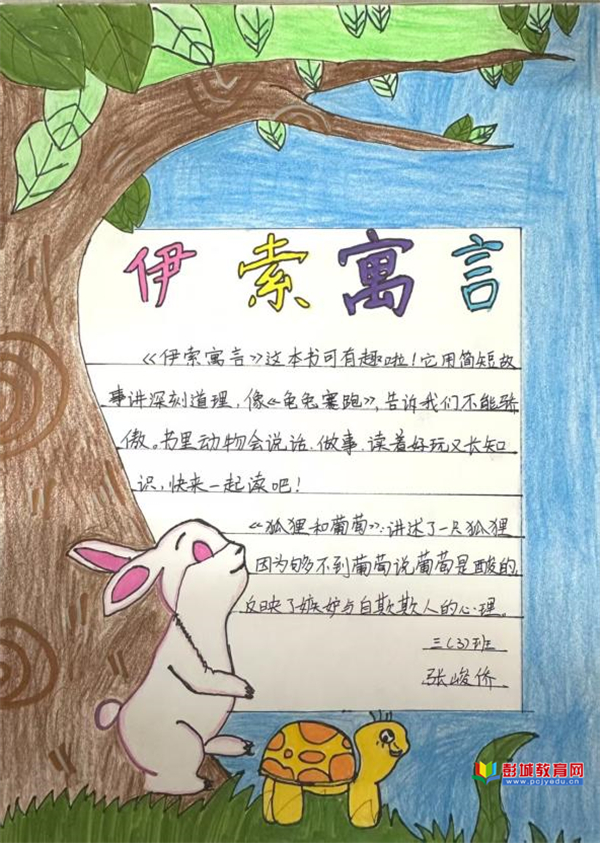 伊索寓言
《伊索寓言》这本书可有趣啦！它用简短故
事讲深刻道理，像《龟兔赛跑》，告诉我们不能骄
傲。书里动物会说话、做事，读着好玩又长知
识，快来一起读吧！
《狐狸和葡萄》：讲述了一只狐狸
因为够不到葡萄说葡萄是酸的，
反映了嫉妒与自欺欺人的心理。
三（3）班
张峻侨
彭城教育网
www.pcjyedu.cn